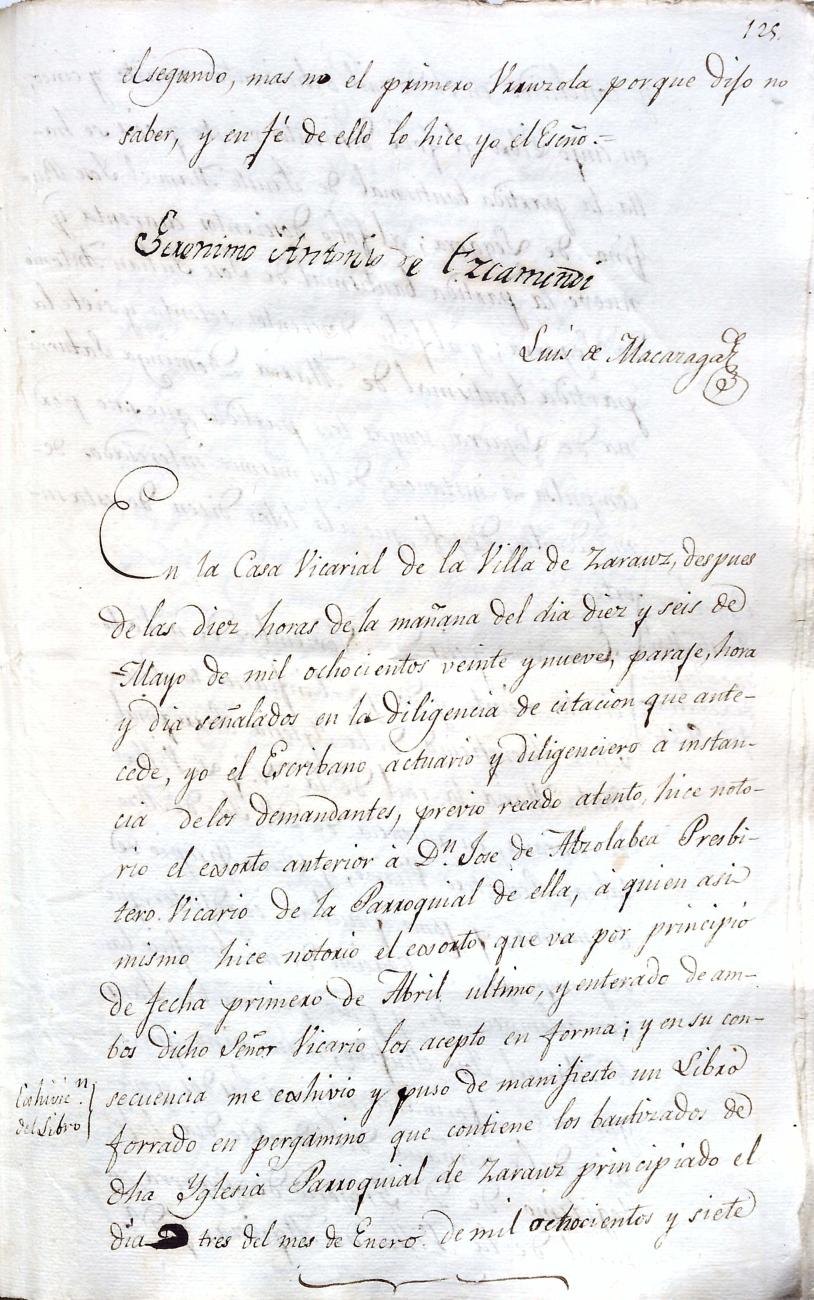 125.
el segundo, mas no el primero Urruzola porque dijo no
saber, y en fé de ello lo hice yo el Escño.=
Geronimo Antonio de Ezcamendi
Luis de Macazaga
En la Casa Vicarial de la Villa de Zarauz, despues
de las diez horas de la mañana del dia diez y seis de
Mayo de mil ochocientos veinte y nueve, paraje, hora
y dia señalados en la diligencia de citacion que ante-
cede, yo el Escribano actuario y diligenciero á instan-
cia delos demandantes, previo recado atento, hice noto-
rio el exorto anterior á Dn. Jose de Atzolabea Presbi-
tero Vicario de la Parroquial de ella, á quien asi
mismo hice notorio el exorto que va por principio
de fecha primero de Abril ultimo, y enterado de am-
bos dicho Señor Vicario los acepto en forma; y en su con-
secuencia me exhivio y puso de manifiesto un Libro
Exhivicn.
del Libro
forrado en pergamino que contiene los bautizados de
dha Yglesia Parroquial de Zarauz principiado el
dia tres del mes de Enero de mil ochocientos y siete